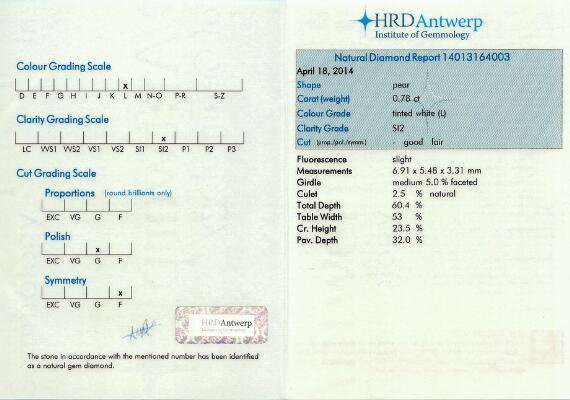 Colour Grading Scale
x
D E F G H I J K L M N-O P-R S-Z
Clarity Grading Scale
x
LC VVS1 VVS2 VS1 VS2 SI1 SI2 P1 P2 P3
Cut Grading Scale
Proportions (round brilliants only)
EXC VG G F
Polish
x
EXC VG G F
Symmetry
x
EXC VG G F
HRDAntwerp
Institute of Gemmology
The stone in accordance with the mentioned number has been identified
as a natural gem diamond.
HRDAntwerp
Institute of Gemmology
Natural Diamond Report 14013164003
April 18, 2014
Shape pear
Carat (weight) 0.78 ct
Colour Grade tinted white (L)
Clarity Grade SI2
Cut (prop./pol./symm.) - good fair
Fluorescence slight
Measurements 6.91 x 5.48 x 3.31 mm
Girdle medium 5.0 % faceted
Culet 2.5 % natural
Total Depth 60.4 %
Table Width 53 %
Cr. Height 23.5 %
Pav. Depth 32.0 %